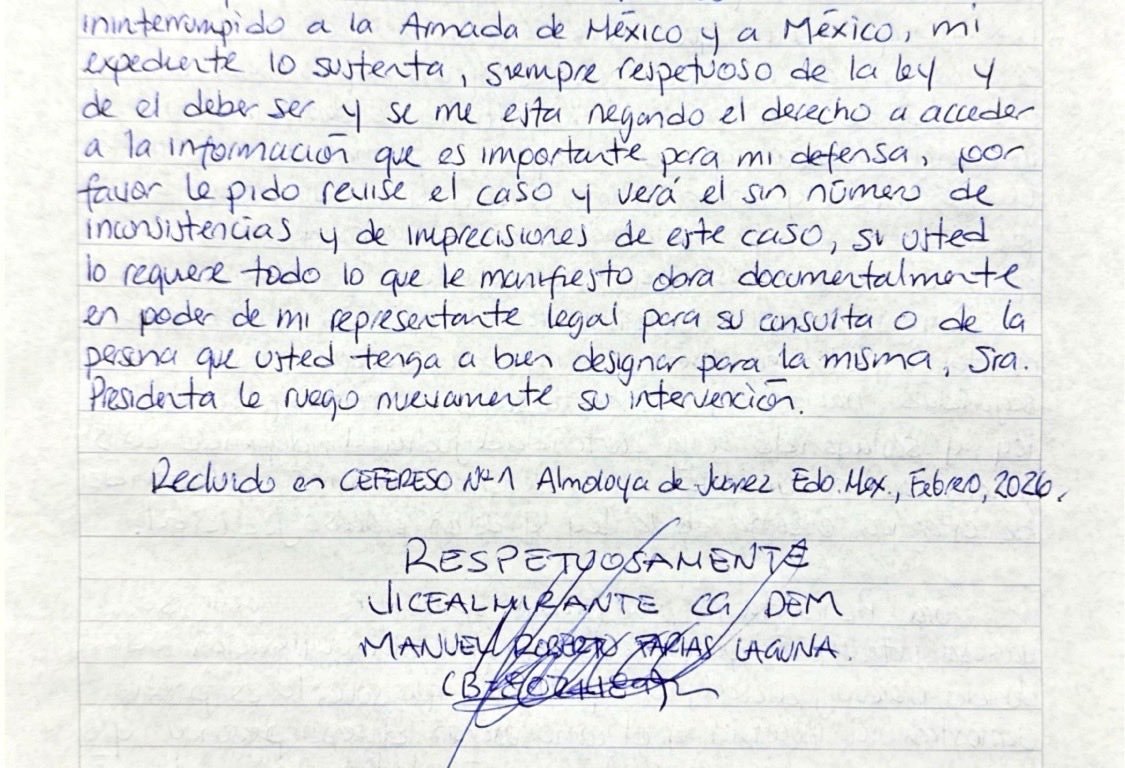 ininterrumpido a la Armada de México y a México, mi
expediente lo sustenta, siempre respetuoso de la ley y
de el deber ser y se me esta negando el derecho a acceder
a la información que es importante para mi defensa, por
favor le pido revise el caso y verá el sin número de
inconsistencias y de imprecisiones de este caso, si usted
lo requiere todo lo que le manifiesto obra documentalmente
en poder de mi representante legal para su consulta o de la
persona que usted tenga a bien designar para la misma, Sra.
Presidenta le ruego nuevamente su intervención.
Recluido en CEFERESO Nº1 Almoloya de Juarez Edo. Mex., Febrero, 2026.
RESPETUOSAMENTE
VICEALMIRANTE CG DEM
MANUEL ROBERTO FARIAS LAGUNA.